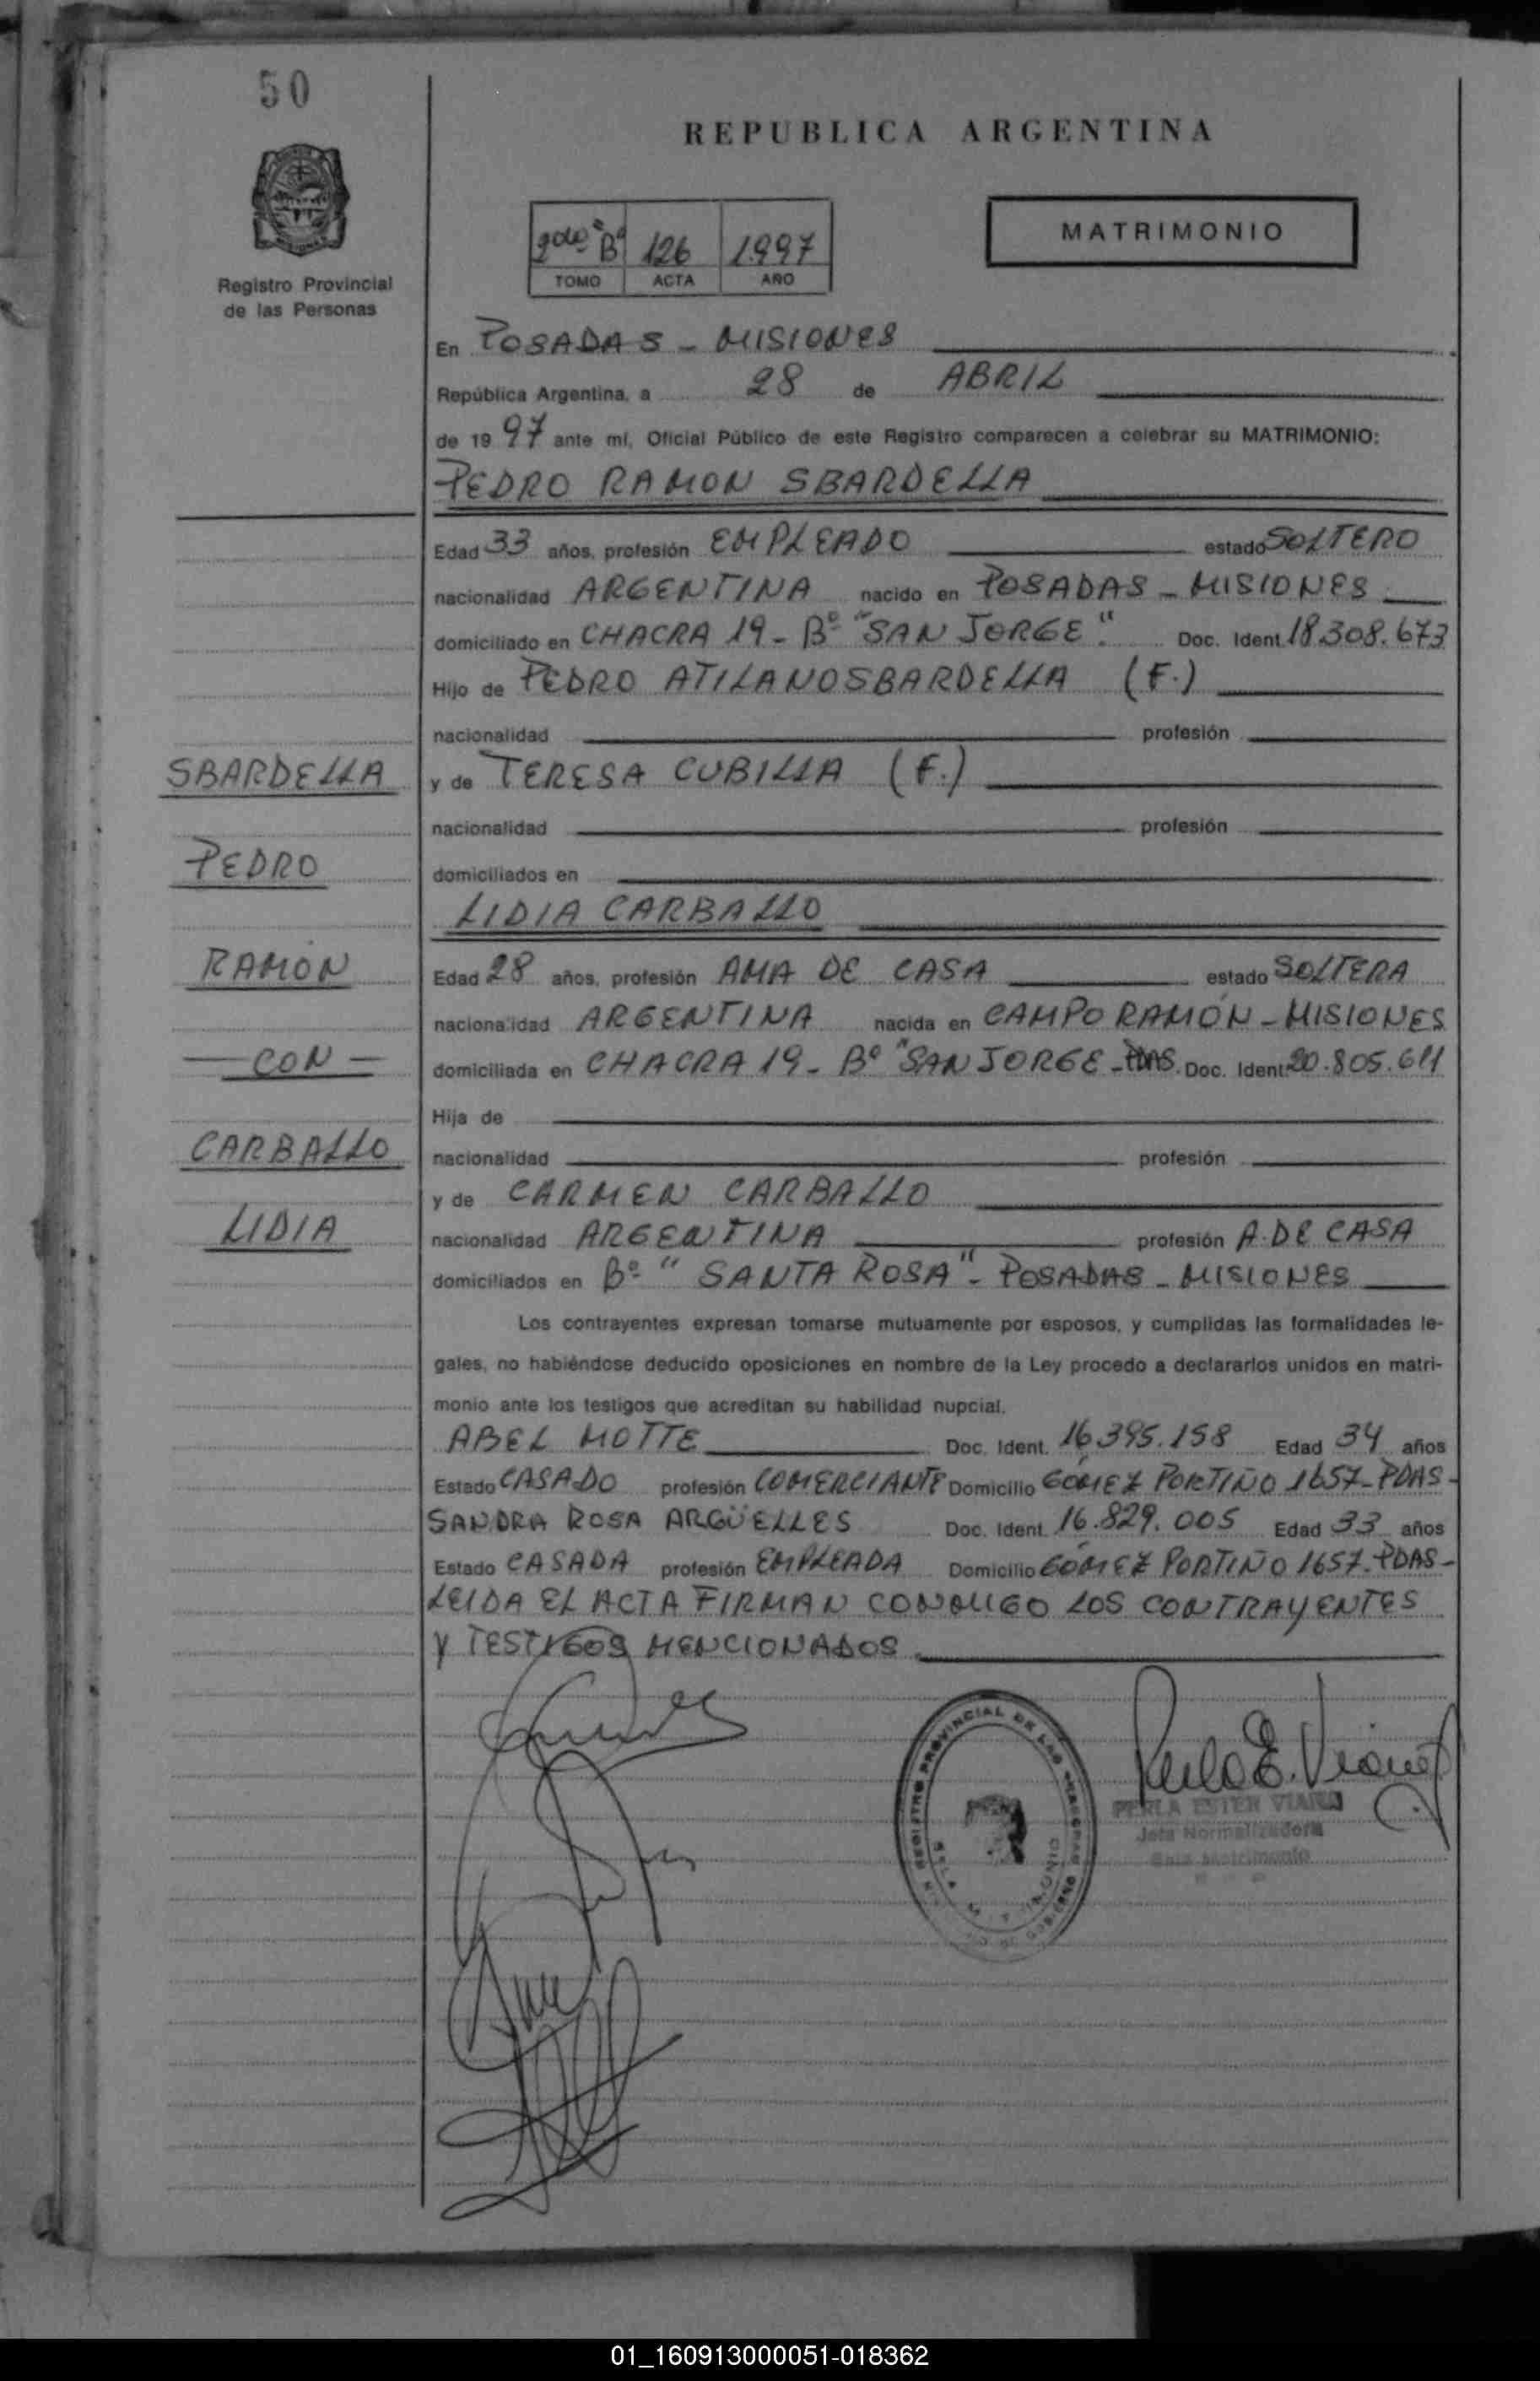 50
REPUBLICA ARGENTINA
MATRIMONIO
2do "B" 126 1997
TOMO ACTA AÑO
Registro Provincial
de las Personas
En POSADAS - MISIONES
República Argentina, a 28 de ABRIL
de 1997 ante mí, Oficial Público de este Registro comparecen a celebrar su MATRIMONIO:
PEDRO RAMON SBARDELLA
Edad 33 años, profesión EMPLEADO estado SOLTERO
nacionalidad ARGENTINA nacido en POSADAS - MISIONES
domiciliado en CHACRA 19 - Bº "SAN JORGE". Doc. Ident. 18.308.673
Hijo de PEDRO ATILANO SBARDELLA (F.)
nacionalidad profesión
SBARDELLA
y de TERESA CUBILLA (F.)
nacionalidad profesión
PEDRO
domiciliados en
LIDIA CARBALLO
RAMÓN
Edad 28 años, profesión AMA DE CASA estado SOLTERA
nacionalidad ARGENTINA nacida en CAMPO RAMÓN - MISIONES
- CON -
domiciliada en CHACRA 19 - Bº "SAN JORGE - PDAS. Doc. Ident. 20.805.611
Hija de
CARBALLO
nacionalidad profesión
y de CARMEN CARBALLO
LIDIA
nacionalidad ARGENTINA profesión A. DE CASA
domiciliados en Bº "SANTA ROSA" - POSADAS - MISIONES
Los contrayentes expresan tomarse mutuamente por esposos, y cumplidas las formalidades le-
gales, no habiéndose deducido oposiciones en nombre de la Ley procedo a declararlos unidos en matri-
monio ante los testigos que acreditan su habilidad nupcial.
ABEL MOTTE Doc. Ident. 16.395.158 Edad 34 años
Estado CASADO profesión COMERCIANTE Domicilio GÓMEZ PORTIÑO 1657 - PDAS -
SANDRA ROSA ARGÜELLES Doc. Ident. 16.829.005 Edad 33 años
Estado CASADA profesión EMPLEADA Domicilio GÓMEZ PORTIÑO 1657 - PDAS -
LEIDA EL ACTA FIRMAN CONMIGO LOS CONTRAYENTES
Y TESTIGOS MENCIONADOS
Perla E. Viana
PERLA ESTER VIANA
Jefa Normalizadora
Sala Matrimonio
REGISTRO PROVINCIAL DE LAS PERSONAS
01_160913000051-018362